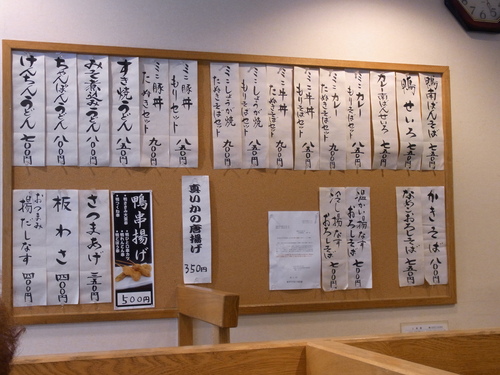 鴨南ばんそば 七五〇円
鴨せいろ 七五〇円
カレー南ばんせいろ 七五〇円
ミニカレー もりそばセット 八五〇円
ミニカレー たぬきそばセット 九〇〇円
ミニ牛丼 もりそばセット 八五〇円
ミニ牛丼 たぬきそばセット 九〇〇円
ミニしょうが焼 もりそばセット 八五〇円
ミニしょうが焼 たぬきそばセット 九〇〇円
ミニ豚丼 もりセット 八五〇円
ミニ豚丼 たぬきセット 九〇〇円
すき焼うどん 八五〇円
みそ煮込みうどん 八〇〇円
ちゃんぽんうどん 八〇〇円
けんちんうどん 七〇〇円
かきそば 八〇〇円
なめこおろしそば 七五〇円
温かい揚なす おろしそば 七〇〇円
冷し揚なす おろしそば 七〇〇円
真いかの唐揚げ
350円
鴨串揚げ
500円
さつまあげ 三五〇円
板わさ 四〇〇円
おつまみ 揚だしなす 四〇〇円